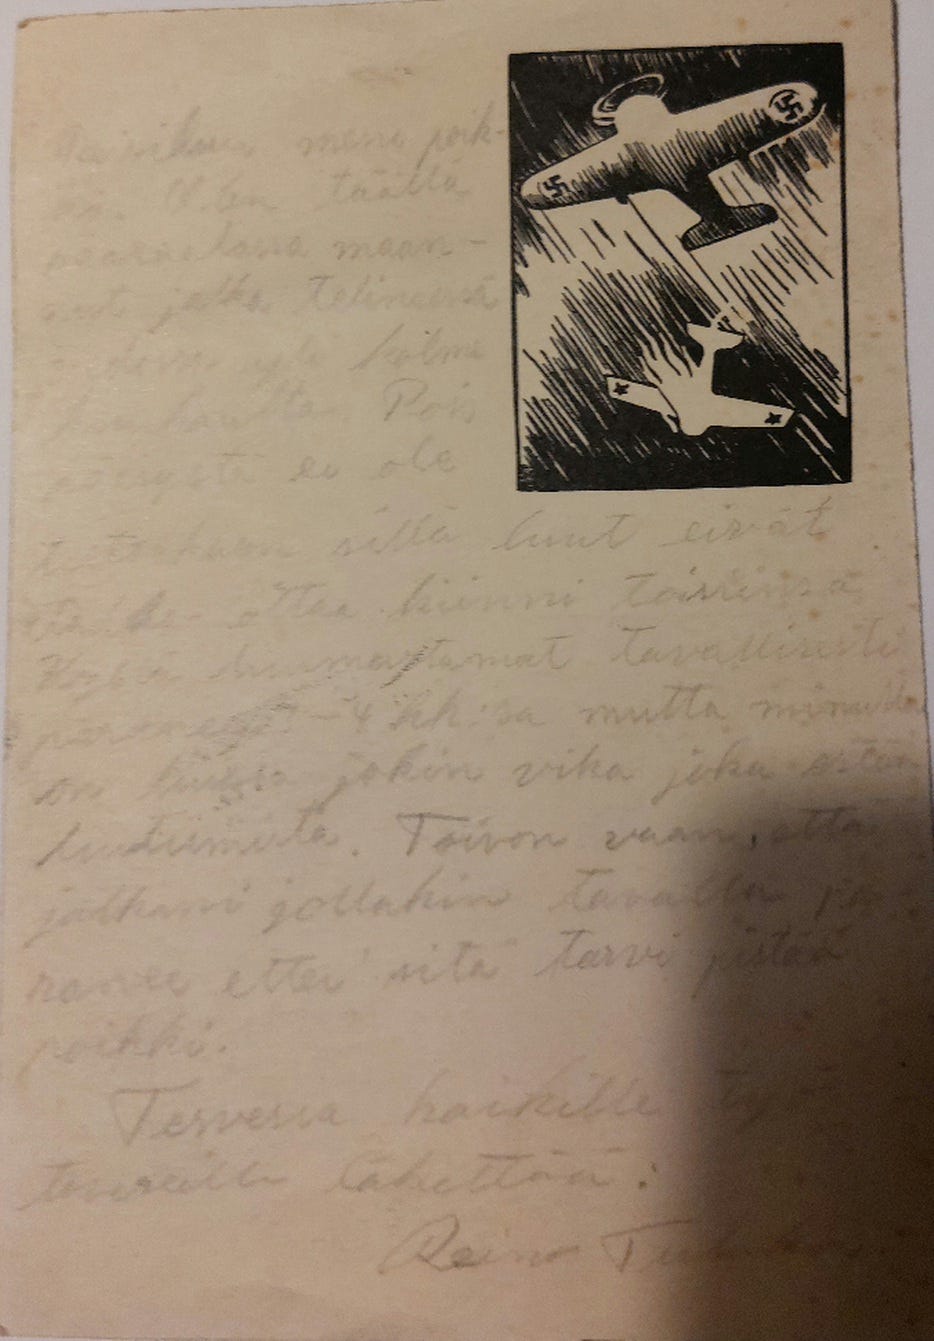 meni poik-
ki. Olen täällä
sairaalassa maan-
nut jalka telineessä
yli kolme
kuukautta. Pois
pääsystä ei ole
tietoakaan sillä luut eivät
ottaa kiinni toisiinsa.
luumurtumat tavallisesti
paranee 3-4 kk:sa mutta minulla
on luussa jokin vika joka estää
luutumista. Toivon vaan, että
jalkani jollakin tavalla pa-
ranee ettei sitä tarvi pistää
poikki.
Terveisiä kaikille työ-
tovereille lähettää:
Reino